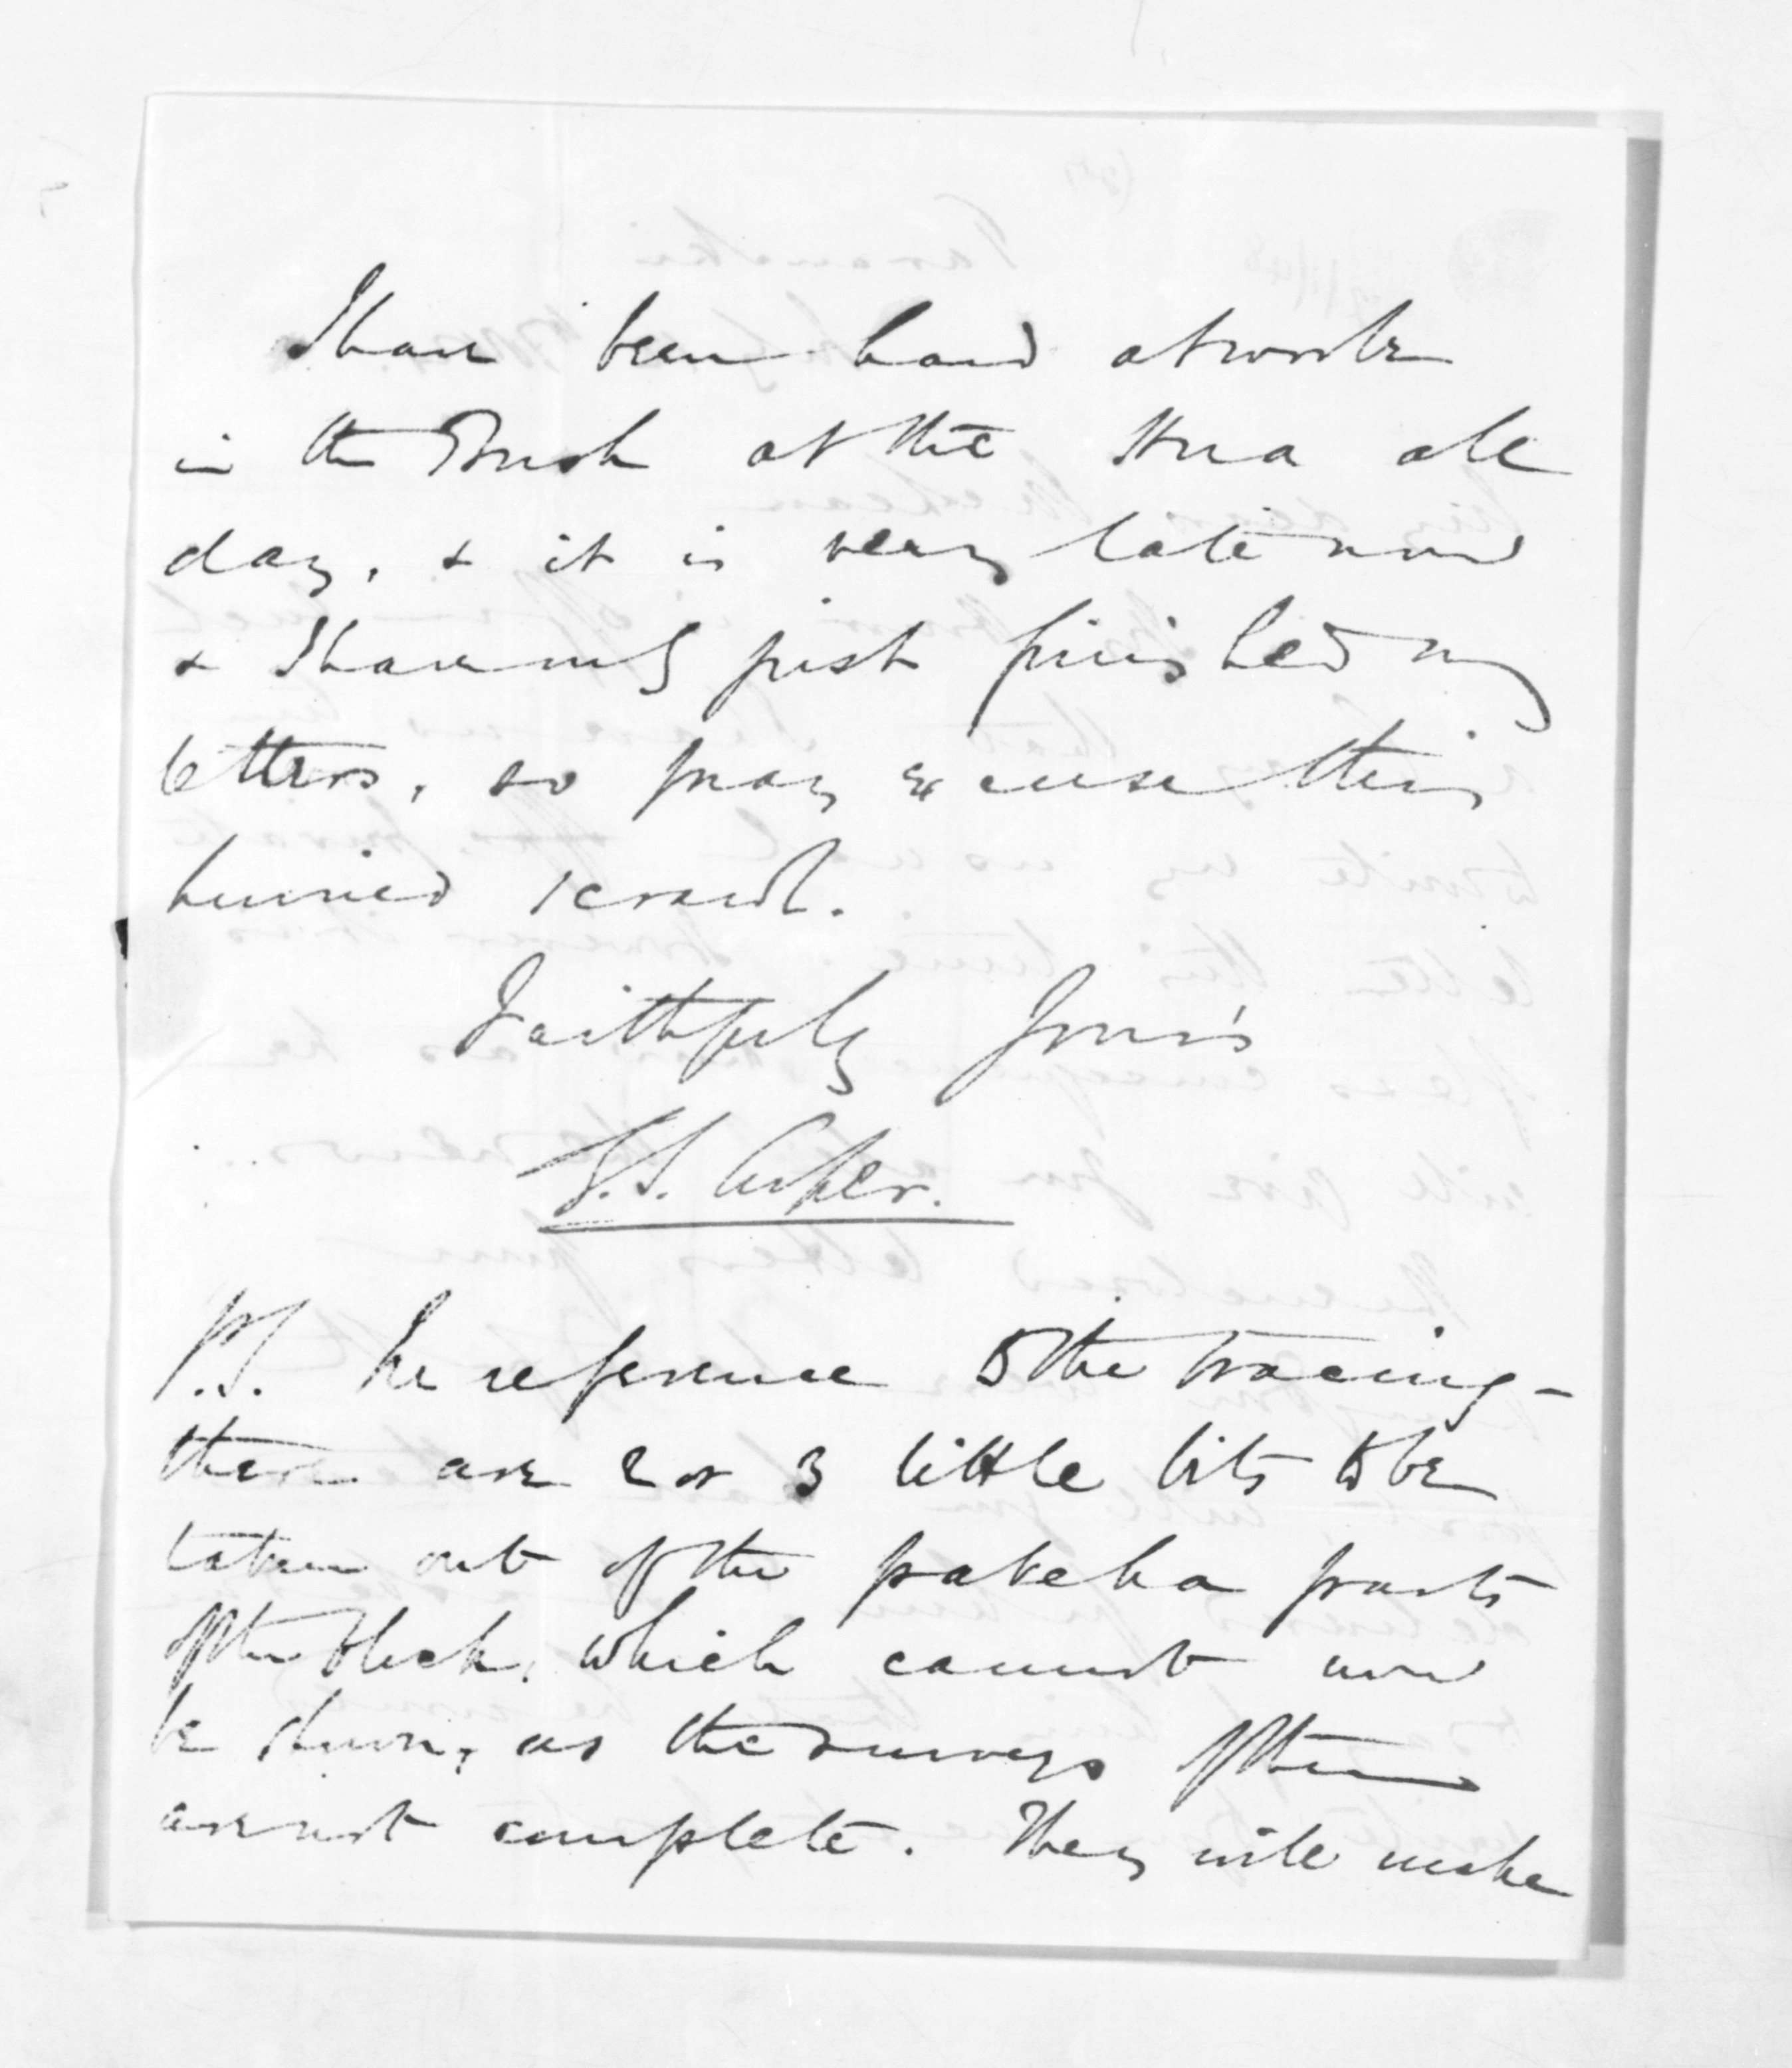 I have been hard at work
in the Bush at the Hua all
day, & it is very late now
& I have only just finished my
letters, so pray excuse this
hurried scrawl.
Faithfully Yours
P.S. In reference to the tracing -
there are 2 or 3 little bits to be
taken out of the pakeha parts
of the block, which cannot now
be shown, as the surveys of them
are not complete. They will make